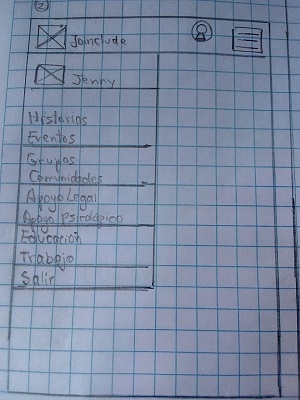 2
Joinclude
Jenny
Historias
Eventos
Grupos
Comunidades
Apoyo Legal
Apoyo Psicológico
Educación
Trabajo
Salir